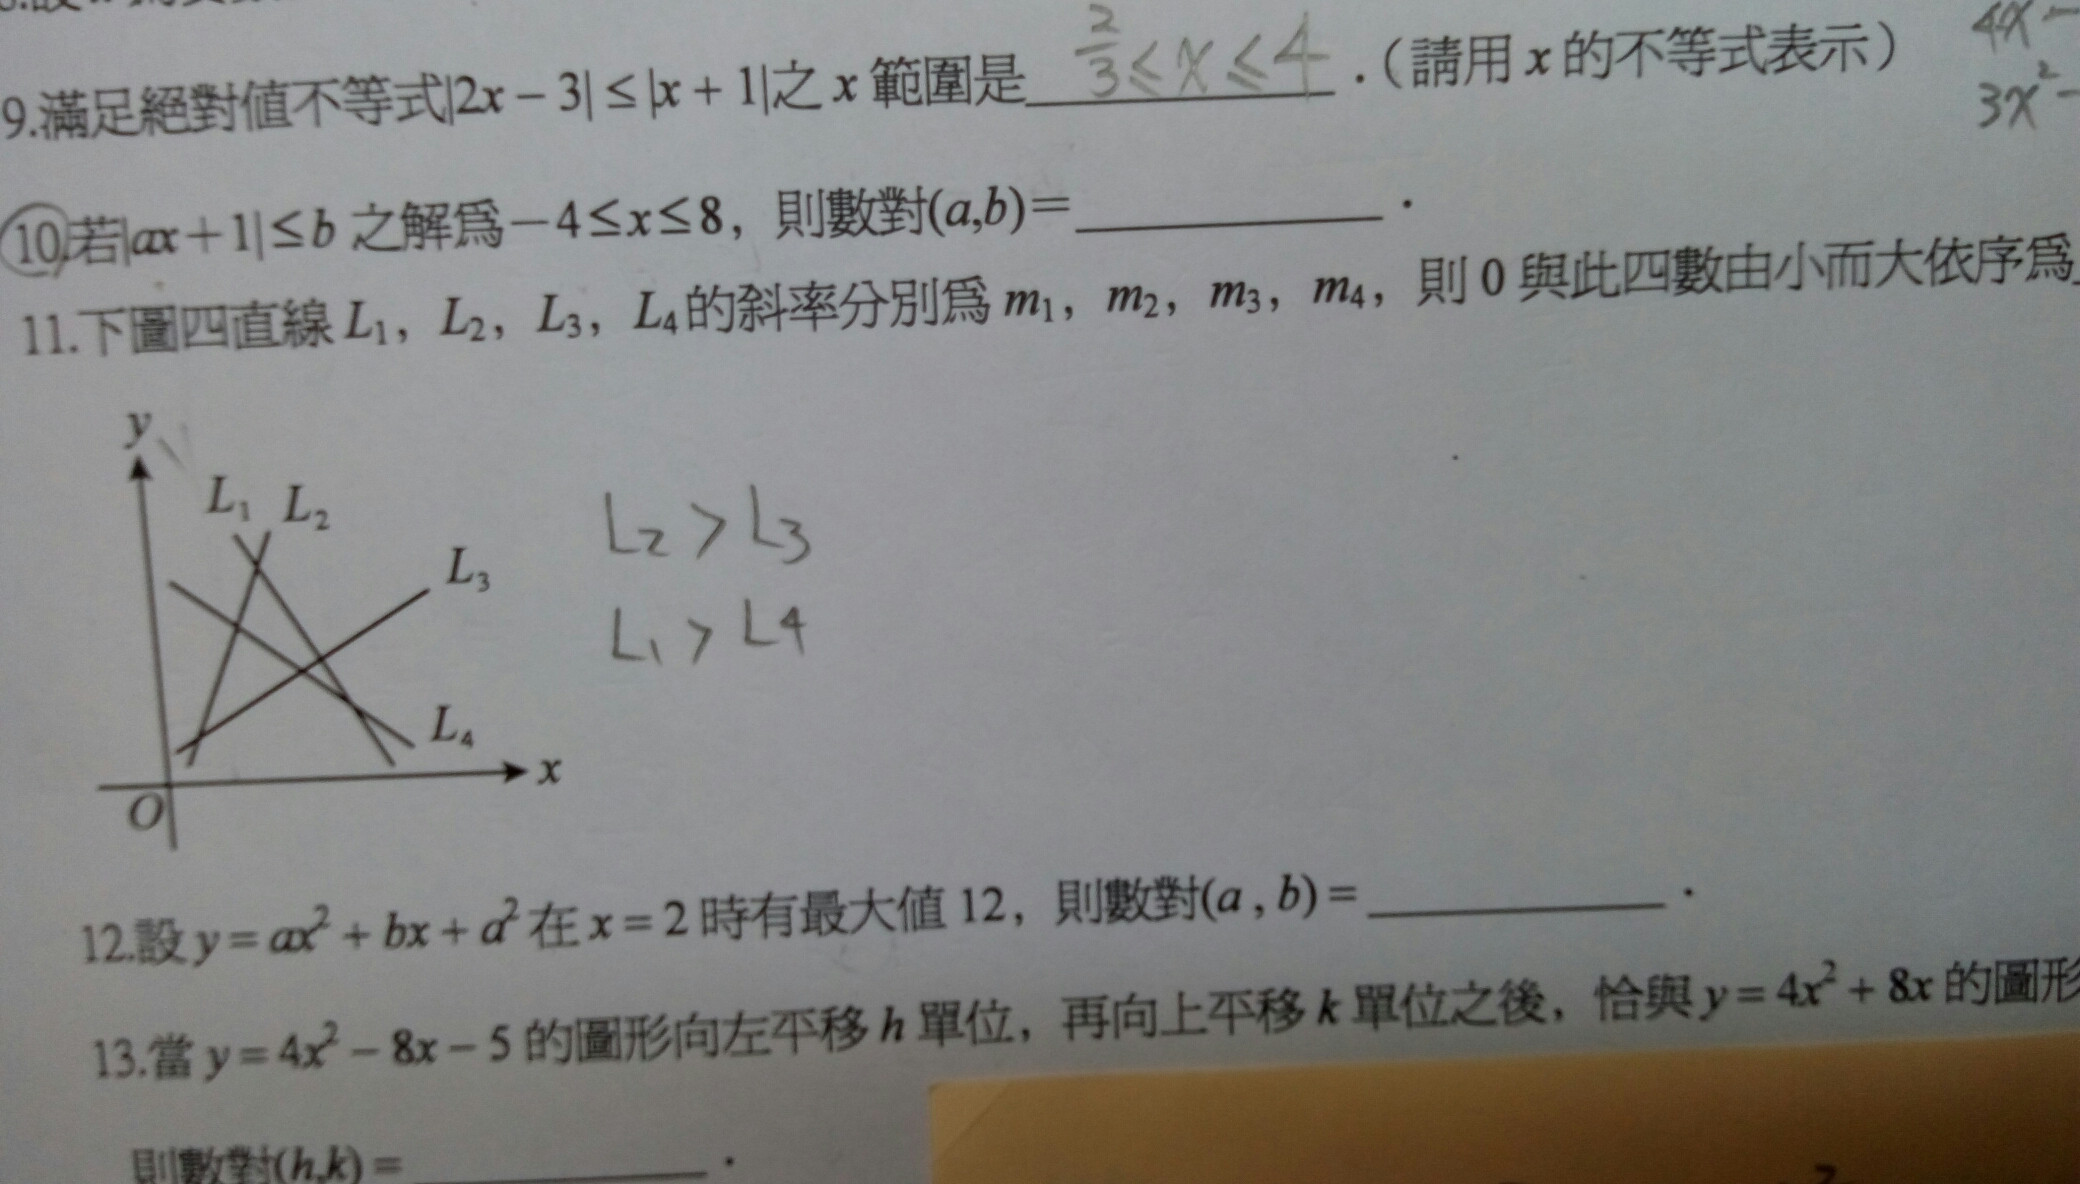 9.滿足絕對值不等式|2x－3|≤|x＋1|之 x 範圍是 2/3≤x≤4 .(請用 x 的不等式表示)
4x－
3x²－
10.若|ax＋1|≤b 之解爲－4≤x≤8，則數對(a,b)＝________.
11.下圖四直線 L₁，L₂，L₃，L₄的斜率分別爲 m₁，m₂，m₃，m₄，則 0 與此四數由小而大依序爲
y
L₁ L₂
L₃
L₄
x
O
L₂ > L₃
L₁ > L₄
12.設 y＝ax²＋bx＋a² 在 x＝2 時有最大值 12，則數對(a , b)＝________.
13.當 y＝4x²－8x－5 的圖形向左平移 h 單位，再向上平移 k 單位之後，恰與 y＝4x²＋8x 的圖形
則數對(h,k)＝________.